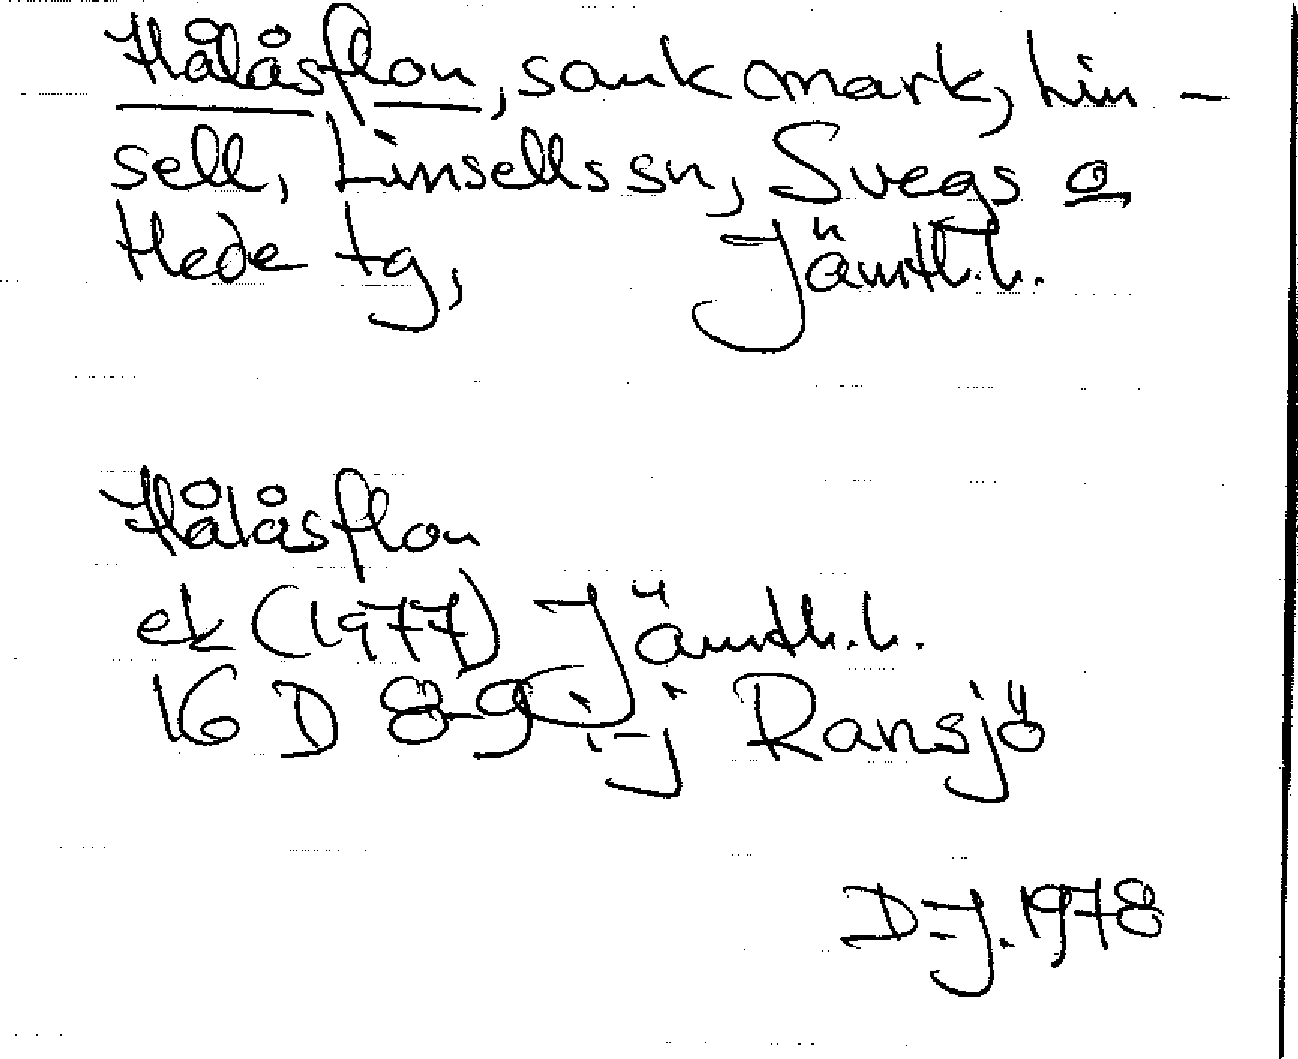 Hålåsflon, sank mark, Lin-
sell, Linsells sn, Svegs o
Hede tg, Jämtl.l.
Hålåsflon
ek (1977) Jämtl.l.
16 D 8-9 i-j Ransjö
D-J. 1978